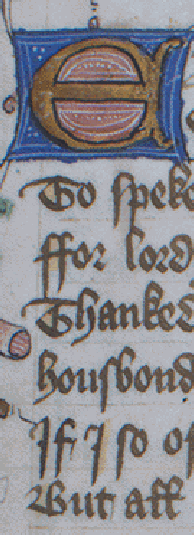 E
To speke
ffor lord
Thanked
housbond
If I so of
But all